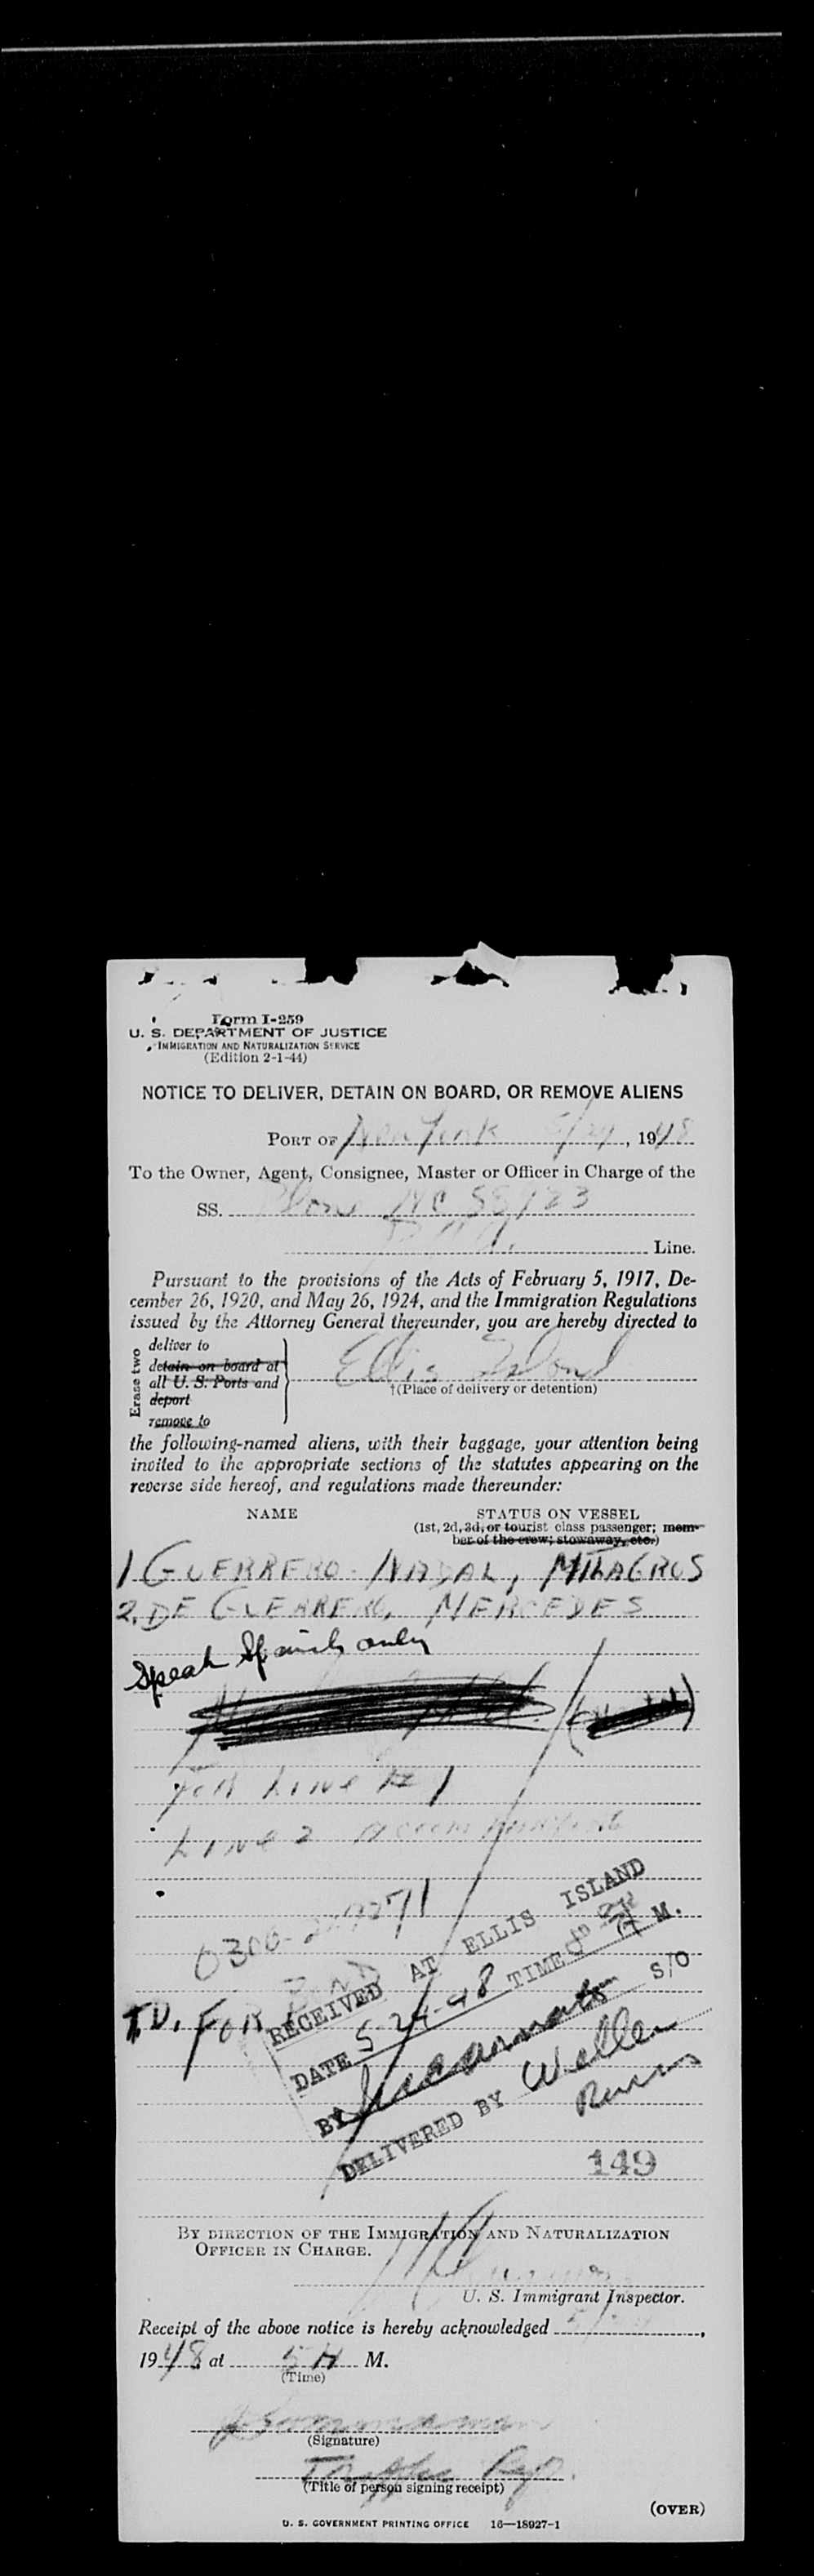 Form I-259
U. S. DEPARTMENT OF JUSTICE
IMMIGRATION AND NATURALIZATION SERVICE
(Edition 2-1-44)
NOTICE TO DELIVER, DETAIN ON BOARD, OR REMOVE ALIENS
PORT OF New York 5/24, 1948
To the Owner, Agent, Consignee, Master or Officer in Charge of the
SS. Plane NC 88123
Line.
Pursuant to the provisions of the Acts of February 5, 1917, De-
cember 26, 1920, and May 26, 1924, and the Immigration Regulations
issued by the Attorney General thereunder, you are hereby directed to
Erase two
deliver to
detain on board at
all U. S. Ports and
deport
remove to
Ellis Island
†(Place of delivery or detention)
the following-named aliens, with their baggage, your attention being
invited to the appropriate sections of the statutes appearing on the
reverse side hereof, and regulations made thereunder:
NAME STATUS ON VESSEL
(1st, 2d, 3d, or tourist class passenger; mem-
ber of the crew; stowaway, etc.)
1 GUERRERO-NADAL, MILAGROS
2. DE GUERRERO, MERCEDES
Speak Spanish only
FOR LINE # 1
LINE 2 accompanying
0300-
T.D. FOR
RECEIVED AT ELLIS ISLAND
DATE 5-24-48 TIME 8 M.
BY S/O
DELIVERED BY Weller
149
BY DIRECTION OF THE IMMIGRATION AND NATURALIZATION
OFFICER IN CHARGE.
U. S. Immigrant Inspector.
Receipt of the above notice is hereby acknowledged 5/24,
1948 at 5 A M.
(Time)
(Signature)
Traffic Rep.
(Title of person signing receipt)
(OVER)
U. S. GOVERNMENT PRINTING OFFICE 16—18927-1